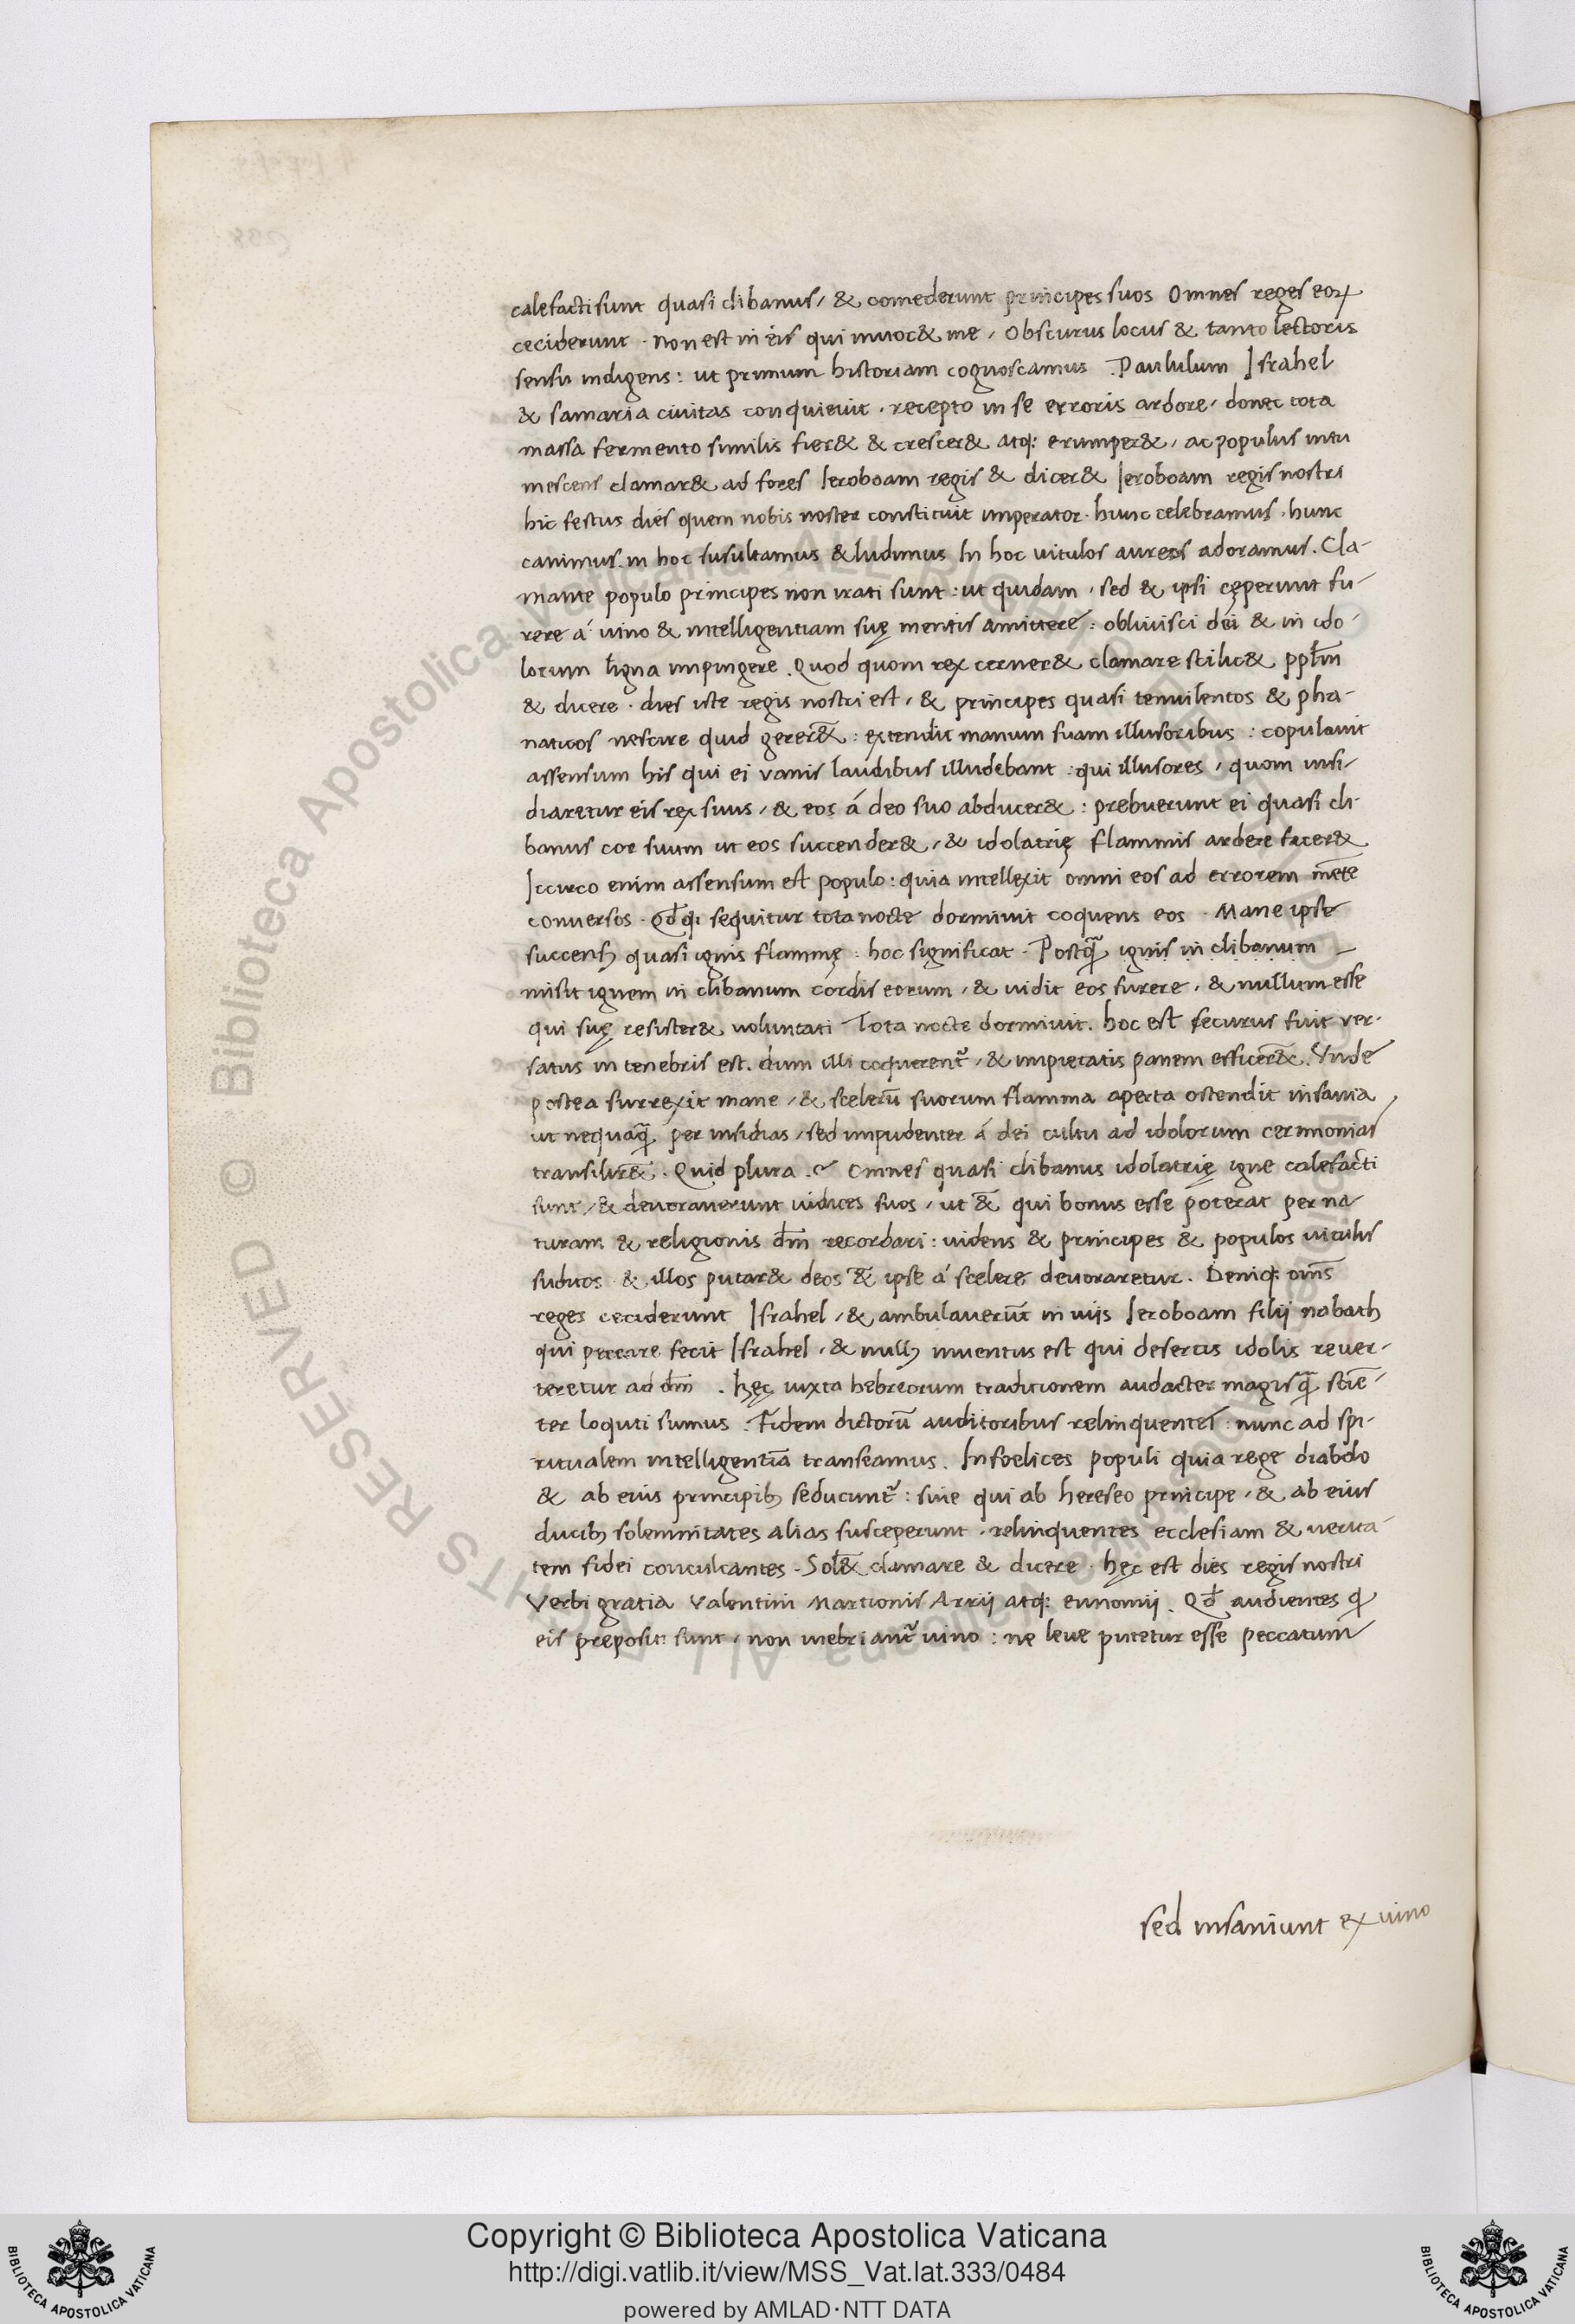 calefacti sunt quasi clibanus, & comederunt principes suos Omnes reges eoꝝ
ceciderunt. Non est in eis qui inuoc& me, Obscurus locus & tanto lectoris
sensu indigens: ut primum historiam cognoscamus. Paululum Israhel
& samaria ciuitas conquieuit. recepto in se erroris ardore, donec tota
massa fermento similis fier& & crescer& atq: erumper&, ac populus intu
mescens clamar& ad fores Ieroboam regis & dicer& Ieroboam regis nostri
hic festus dies quem nobis noster constituit imperator. hunc celebramus. hunc
canimus. in hoc susultamus & ludimus In hoc uitulos aureos adoramus. Cla-
mante populo principes non irati sunt: ut quidam, sed & ipsi cęperunt fu-
rere á uino & intelligentiam suę mentis amittere: obliuisci dei & in ido-
lorum ligna impingere. Quod quom rex cerner& clamare scilic& ppłm
& dicere. dies iste regis nostri est, & principes quasi temulentos & pha-
naticos nescire quid gerer&̄: extendit manum suam illusoribus: copulauit
assensum his qui ei vanis laudibus illudebant: qui illusores, quom insi-
diaretur eis rex suus, & eos á deo suo abducer&: prebuerunt ei quasi cli-
banus cor suum ut eos succender&, & idolatrię flammis ardere facer&
Iccirco enim assensum est populo: quia intellexit omni eos ad errorem mēte
conuersos. Qđq: sequitur tota nocte dormiuit coquens eos. Mane ipse
succensꝰ quasi ignis flammę: hoc significat. Postq̄ ignis in clibanum
misit ignem in clibanum cordis eorum, & uidit eos furere, & nullum esse
qui suę resister& voluntati Tota nocte dormiuit. hoc est securus fuit ver-
satus in tenebris est. dum illi coquerent᷑, & impietatis panem efficer&̄. Vnde
postea surrexit mane, & scelerū suorum flamma aperta ostendit insania,
ut nequaq̄ per insidias, sed impudenter á dei cultu ad idolorum cerimonias
transilir&̄. Quid plura.? Omnes quasi clibanus idolatrię igne calefacti
sunt, & deuorauerunt iudices suos, ut &̄ qui bonus esse poterat per na
turam & religionis dm̄ recordari: uidens & principes & populos uitulis
subditos & illos putar& deos &̄ ipse á scelere deuoraretur. Deniq: om̄s
reges ceciderunt Israhel, & ambulauerūt in uijs Ieroboam filij nabath
qui peccare fecit Israhel, & nullꝰ inuentus est qui desertis idolis reuer-
teretur ad dm̄. hęc iuxta hebreorum traditionem audacter magisq̄ sciē-
ter loquti sumus. Fidem dictorū auditoribus relinquentes: nunc ad spi-
ritualem intelligentiā transeamus. Infoelices populi quia rege diabolo
& ab eius principibꝰ seducunt᷑: siue qui ab hereseo principe, & ab eius
ducibꝰ solemnitates alias susceperunt. relinquentes ecclesiam & uerita-
tem fidei conculcantes. Sol&̄ clamare & dicere. hęc est dies regis nostri
Verbi gratia Valentini Martionis Arrij atq: eunomij. Qđ audientes q̇
eis prepositi sunt, non inebriant᷑ uino: ne leue putetur esse peccatum
sed insaniunt ex uino
Copyright © Biblioteca Apostolica Vaticana
http://digi.vatlib.it/view/MSS_Vat.lat.333/0484
powered by AMLAD·NTT DATA
BIBLIOTECA APOSTOLICA VATICANA
BIBLIOTECA APOSTOLICA VATICANA